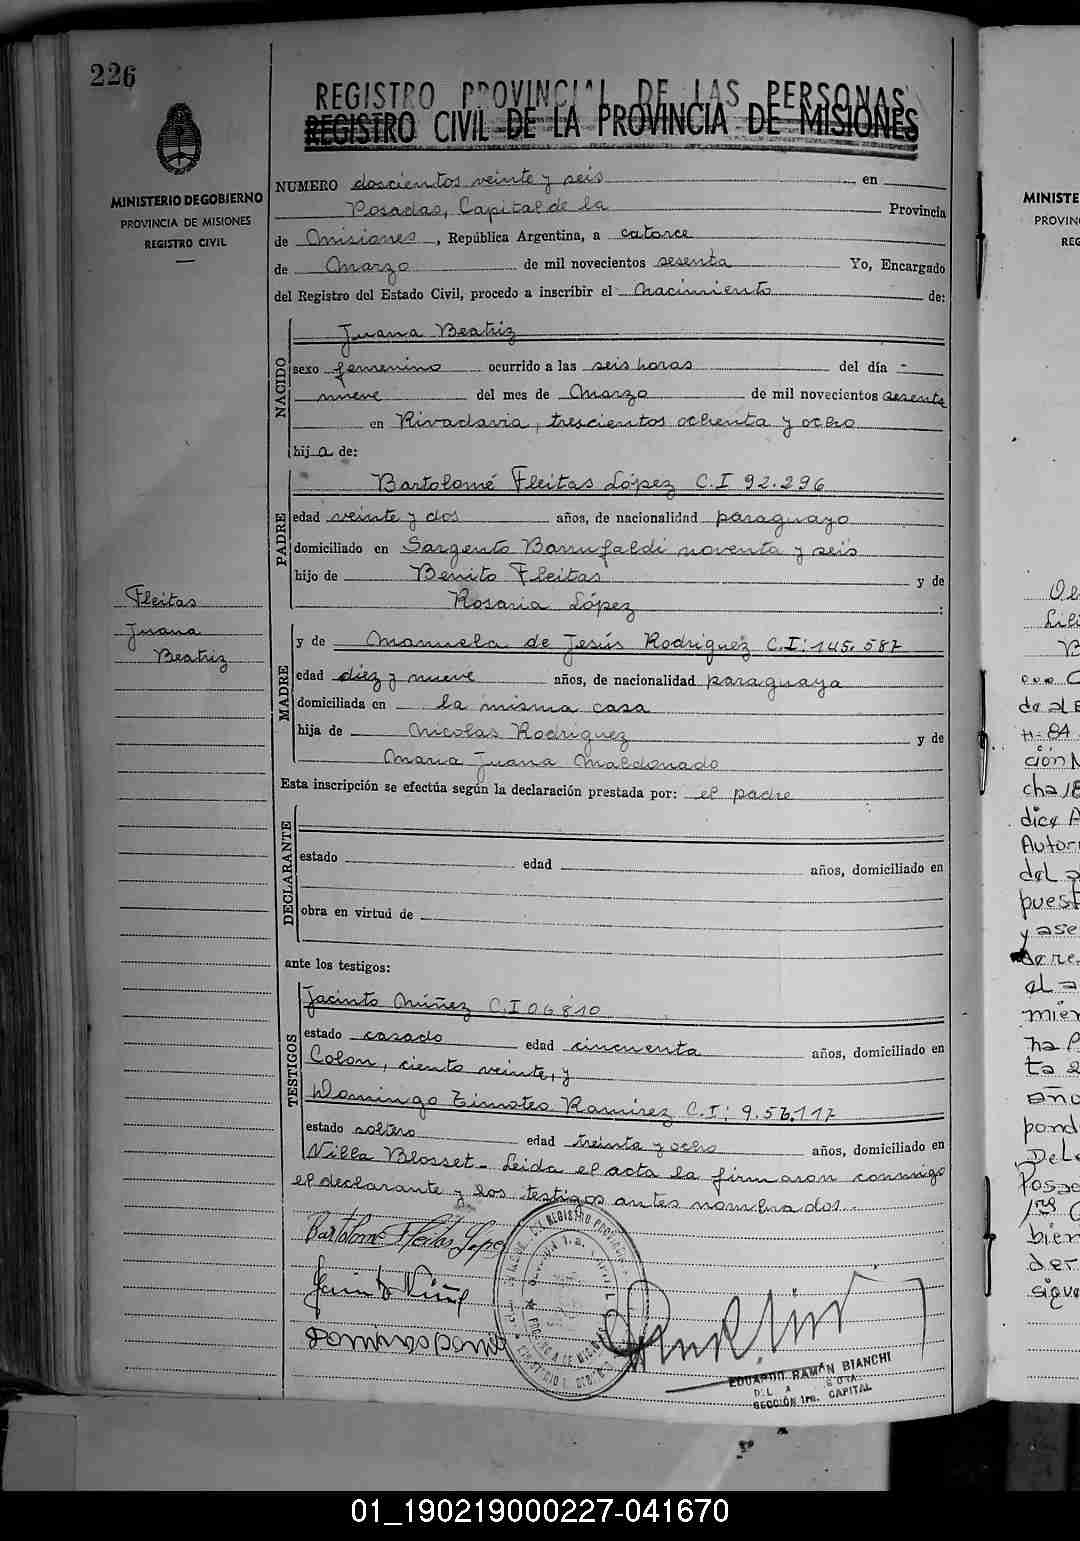 226
REGISTRO PROVINCIAL DE LAS PERSONAS
REGISTRO CIVIL DE LA PROVINCIA DE MISIONES
MINISTERIO DE GOBIERNO
PROVINCIA DE MISIONES
REGISTRO CIVIL
NUMERO doscientos veinte y seis en
Posadas, Capital de la Provincia
de Misiones, República Argentina, a catorce
de Marzo de mil novecientos sesenta Yo, Encargado
del Registro del Estado Civil, procedo a inscribir el nacimiento de:
NACIDO
Juana Beatriz
sexo femenino ocurrido a las seis horas del día -
nueve del mes de Marzo de mil novecientos sesenta
en Rivadavia, trescientos ochenta y ocho
hija de:
PADRE
Bartolomé Fleitas López C.I 92.296
edad veinte y dos años, de nacionalidad paraguayo
domiciliado en Sargento Barrufaldi noventa y seis
hijo de Benito Fleitas y de
Rosaria López :
Fleitas
Juana
Beatriz
MADRE
y de Manuela de Jesús Rodriguez C.I: 145.587
edad diez y nueve años, de nacionalidad paraguaya
domiciliada en la misma casa
hija de Nicolas Rodriguez y de
Maria Juana Maldonado
Esta inscripción se efectúa según la declaración prestada por: el padre
DECLARANTE
estado edad años, domiciliado en
obra en virtud de
ante los testigos:
TESTIGOS
Jacinto Núñez C.I 06810
estado casado edad cincuenta años, domiciliado en
Colon, ciento veinte, y
Domingo Timoteo Ramirez C.I: 9.56.117
estado soltero edad treinta y ocho años, domiciliado en
Villa Blosset - Leida el acta la firmaron conmigo
el declarante y los testigos antes nombrados.
Bartolome Fleitas Lopez
Jacinto Núñez
EDUARDO RAMÓN BIANCHI
SECCIÓN 1ra. CAPITAL
MINISTE
PROVIN
REG
01_190219000227-041670